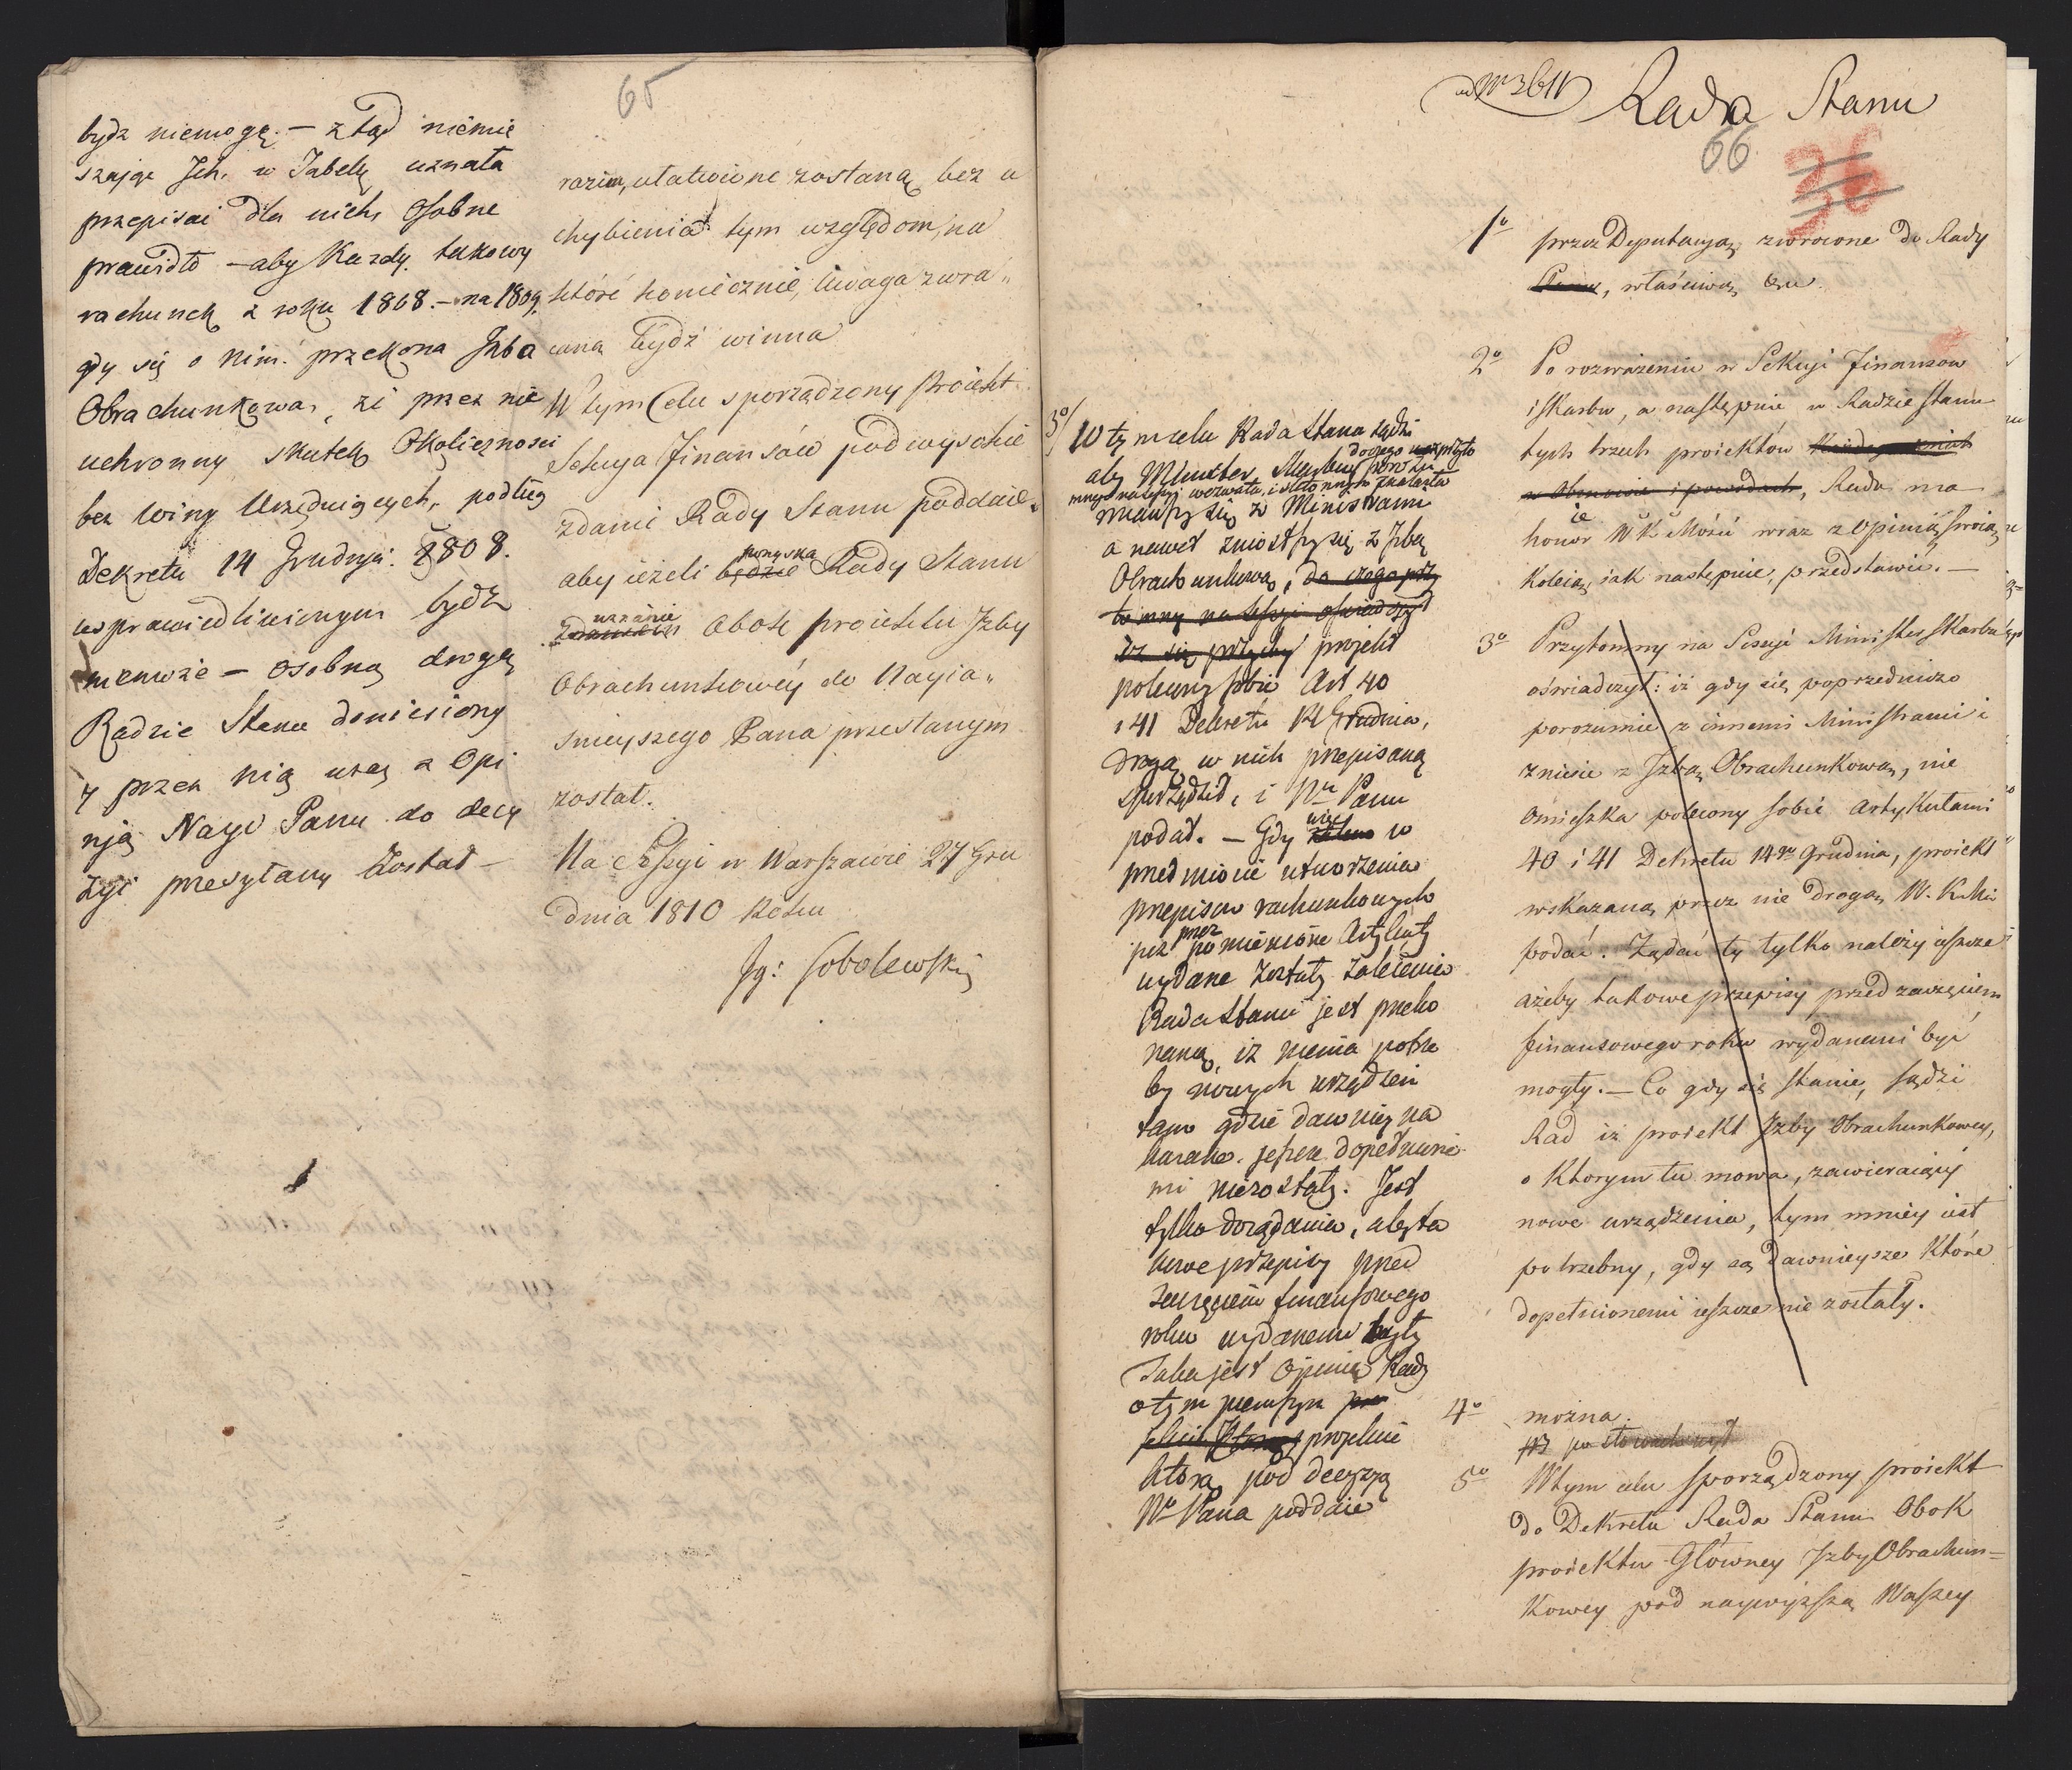 65
bydź niemogę. — z tąd niemie
szaiąc Ich. w Tabelę uznała
przepisać dla nich, Osobne
prawidło — aby Kazdy. takowy
rachunek z roku 1808. — na 1809.
gdy się o nim. przekona Izba
Obrachunkowa, zi przez nie
uchronny skutek Okoliczności
bez winy Urzęduiących, podług
Dekretu 14 Grudnia. 1808.
usprawiedliwionym bydź
niemoże — osobną drogą
Radzie Stanu doniesiony
y przez nią wraz z Opi
nią Nayo Panu do decy
zyi przesyłany został —
razim, ułatwione zostaną bez u
chybienia tym względom, na
któré koniecznie, Uwaga zwra„
caną bydź winna
W tym Celu sporządzony Proiekt
Sekcya Finansów pod wysokie
zdanie Rady Stanu poddaie„
aby ieżeli będzie pozyska Rady Stanu
uznanie
obok proiektu Izby
Obrachunkowéy do Nayia„
śnieyszego Pana przesłanym
został.
Na Sessyi w Warszawie 27 Gru
dnia 1810 Roku
Jg: Sobolewski
ad Nr 3611
Rada Stanu
66
36
1o przez Deputacyą, zwrócone do Rady
, właściwą, &c.
2o Po rozważeniu w Sekcyi Finansow
i Skarbu, a następnie w Radzie Stanu
tych trzech proiektów
, Rada ma
ie
honor W. K. Mości wraz z Opinią swoią
koleią, iak nastepuie, przedstawić. —
3o Przytomny na Sessyi Minister Skarbu
oświadczył: iż gdy się poprzedniczo
porozumie z innemi Ministrami i
zniesie z Izbą Obrachunkową, nie
omieszka polecony sobie Artykułami
40 i 41 Dekretu 14go Grudnia, proiekt
wskazaną przez nie drogą W. K. Mci
podać. Żądać tę tylko należy ieszcze
ażeby takowe przepisy przed zawzięciem
finansowego roku wydanemi być
mogły. — Co gdy się stanie, sądzi
Rad iż proiekt Izby Obrachunkowey,
o Ktorym tu mowa, zawieraiący
nowe urządzenia, tym mniey iest
potrzebny, gdy są dawnieysze Które
dopełnionemi ieszcze nie zostały.
4o można.
5o W tym celu sporządzony proiekt
do Dekretu Rada Stanu Obok
proiektu Główney Izby Obrachun=
Kowey pod naywyższą Waszey
3o/ W tym celu Rada Stanu sądzi
aby Minister Skarbu
zniosłszy się z Ministrami
a nawet zniosłszy się z Izbą
Obrachunkową, do czego przy
tomny na Sessyi oświadczył
projekt
polecony sobie Art 40
i 41 Dekretu 14 Grudnia,
drogą w nich przepisaną
sporządził, i No Panu
podał. — Gdy więc w
przedmiocie utworzenia
przepisow rachunkowych
przez
już pomienione Artykuły
wydane zostały zalecenia
Rada Stanu jest przeko
naną, iż niema potrze
by nowych urządzeń
tam gdzie dawniey na
kazane jeszcze dopełnione
mi niezostały. Jest
tylko dożądania, aby ta
kowe przepisy przed
zaczęciem finansowego
roku wydanemi były
Taka jest Opinia Rady
o tym pierwszym
projekcie
którą pod decyzyą
No Pana poddaie